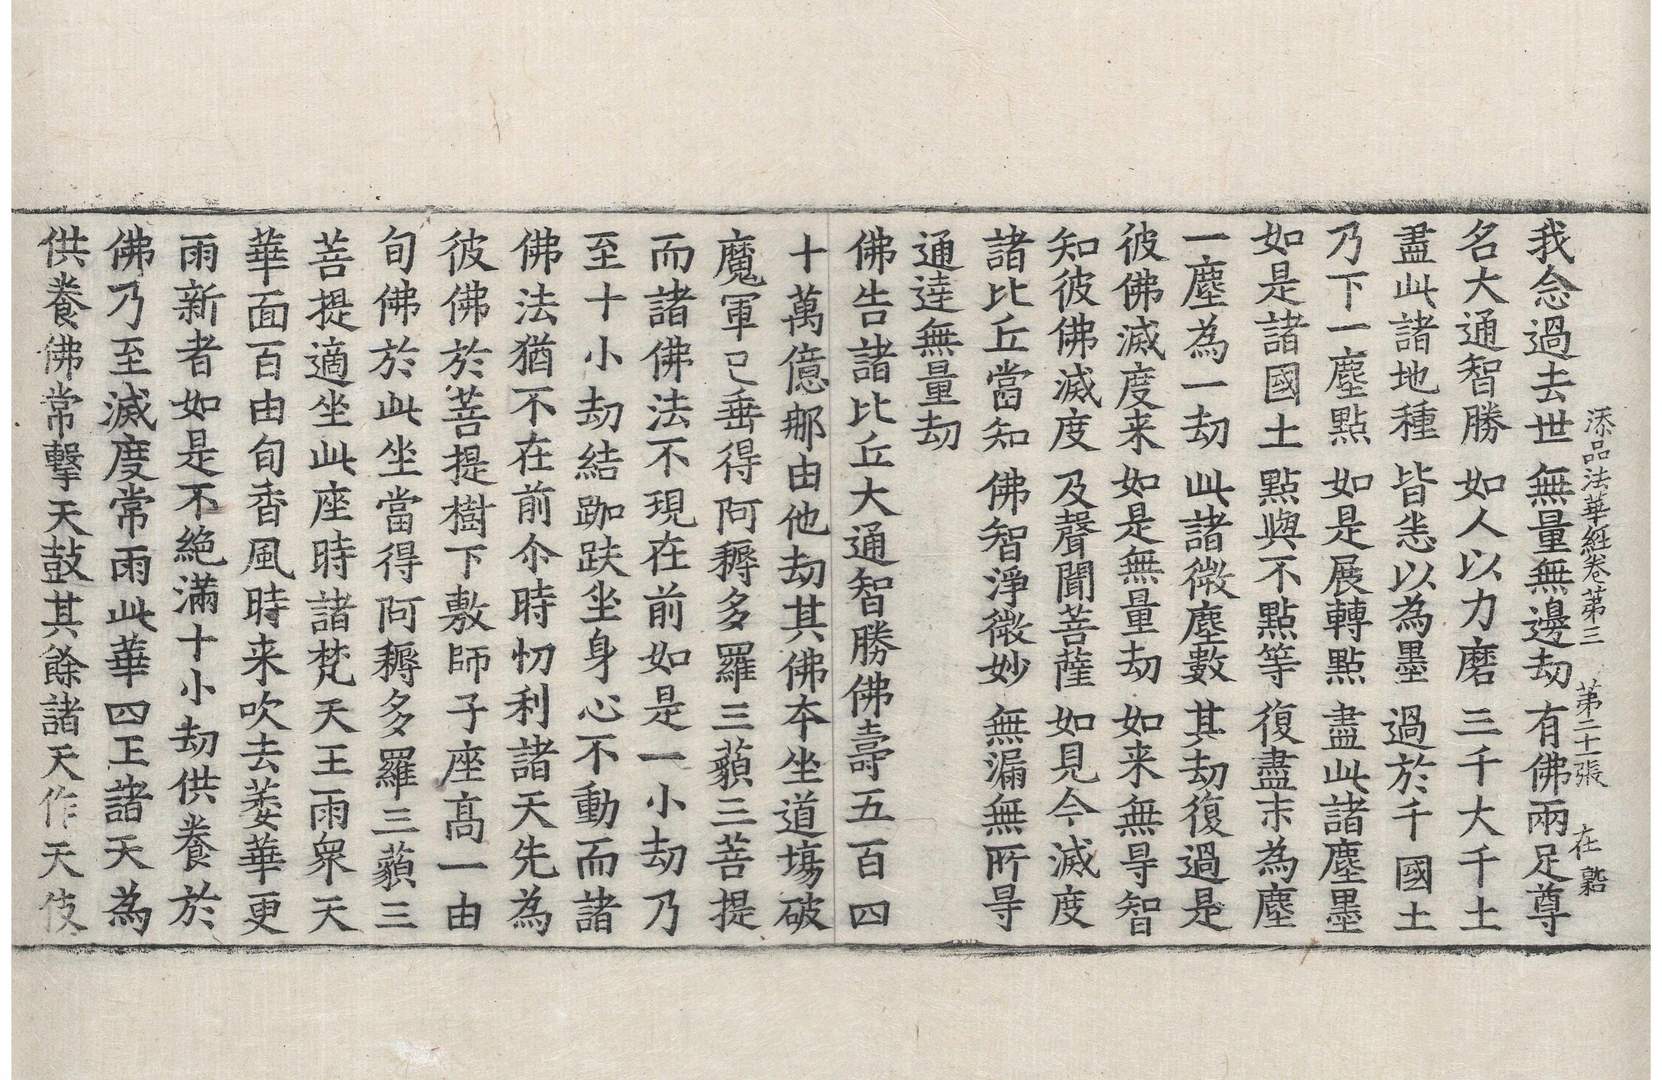 添品法華經卷第三 第二十張 在
我念過去世 無量無邊劫 有佛兩足尊
名大通智勝 如人以力磨 三千大千土
盡此諸地種 皆悉以為墨 過於千國土
乃下一塵點 如是展轉點 盡此諸塵墨
如是諸國土 點與不點等 復盡末為塵
一塵為一劫 此諸微塵數 其劫復過是
彼佛滅度来 如是無量劫 如来無㝵智
知彼佛滅度 及聲聞菩薩 如見今滅度
諸比丘當知 佛智淨微妙 無漏無所㝵
通達無量劫
佛告諸比丘大通智勝佛壽五百四
十萬億那由他劫其佛本坐道場破
魔軍已垂得阿耨多羅三藐三菩提
而諸佛法不現在前如是一小劫乃
至十小劫結跏趺坐身心不動而諸
佛法猶不在前尒時忉利諸天先為
彼佛於菩提樹下敷師子座高一由
旬佛於此坐當得阿耨多羅三藐三
菩提適坐此座時諸梵天王雨眾天
華面百由旬香風時来吹去萎華更
雨新者如是不絕滿十小劫供養於
佛乃至滅度常雨此華四王諸天為
供養佛常擊天鼓其餘諸天作天伎